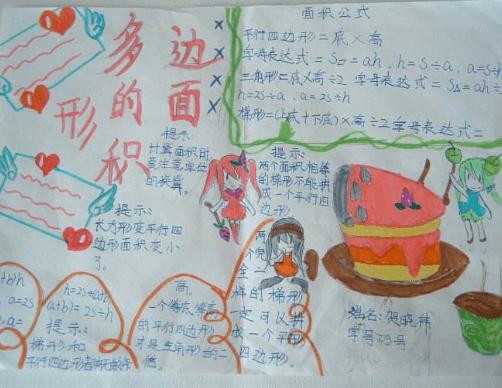 多边形的面积
面积公式
平行四边形=底×高
字母表达式=S□=ah,h=S÷a,a=S÷h
三角形=底×高÷2 字母表达式=S△=ah÷
h=2S÷a,a=2S÷h
梯形=(上底+下底)×高÷2字母表达式=
提示:
计算面积时
要注意单位
的换算。
提示:
两个面积相等
的梯形不能拼
成一个平行四
边形。
提示:
长方形变平行四
边形面积变小
了。
两
个完
全一
样的梯形
一定可以拼
成一个平行
四边形。
a+b)h
a=2S
a=
h=2S÷(a+b)
(a+b)=2S÷h
提示:
梯形和
平行四边形
高。
一个等底、等高
的平行四边形
才是三角形的二
倍。
姓名:贺晓
学号:39号